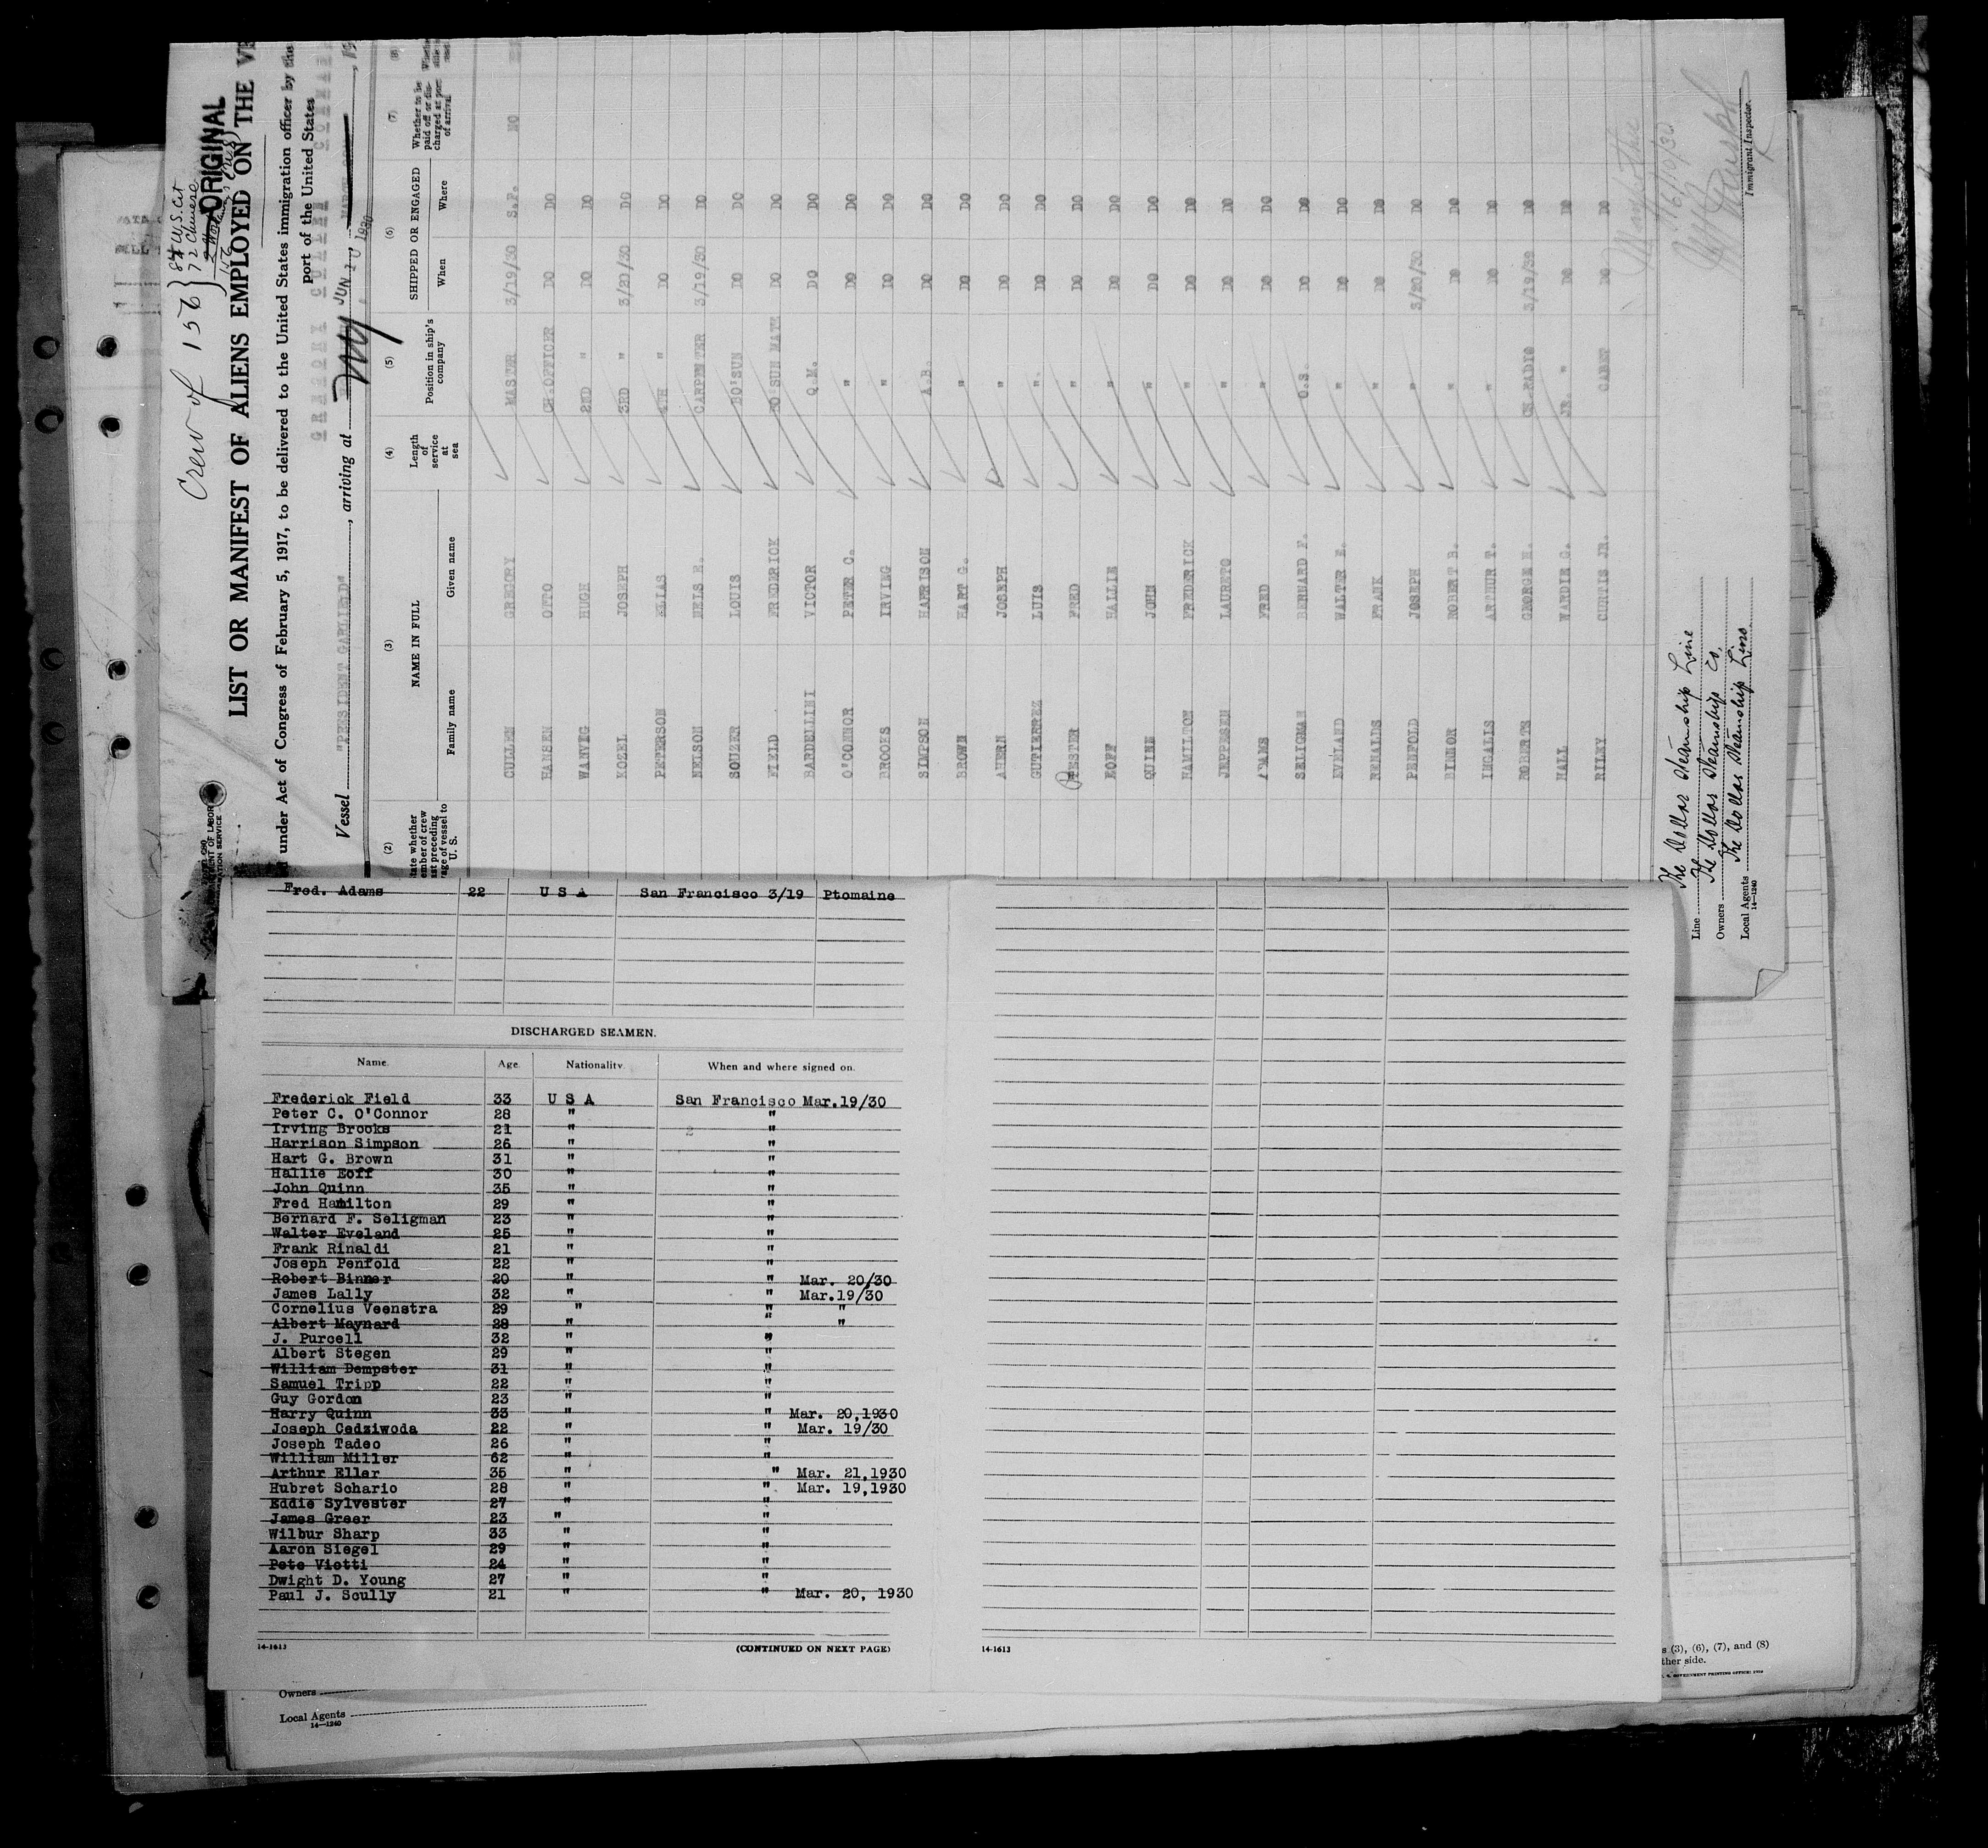 Crew of 156
84 U.S. Cit
72 Chinese
156
ORIGINAL
LIST OR MANIFEST OF ALIENS EMPLOYED ON THE
under Act of Congress of February 5, 1917, to be delivered to the United States immigration officer by the
port of the United States
Vessel "PRESIDENT GARFIELD", arriving at JUN 10 1930, 19
(2) (3) (4) (5) (6) (7) (8)
NAME IN FULL
Family name Given name
Length of service at sea
Position in ship's company
SHIPPED OR ENGAGED
When Where
Whether to be paid off or discharged at port of arrival
CULLEN GREGORY MASTER 3/19/30 S.F. NO
HANSEN OTTO CH.OFFICER DO DO
WANVIG HUGH 2ND " DO DO
KOZEL JOSEPH 3RD " 3/20/30 DO
PETERSON ELIAS 4TH " DO DO
NELSON NELS E. CARPENTER 3/19/30 DO
SOUZER LOUIS BO'SUN DO DO
FIELD FREDERICK BO'SUN MATE DO DO
BARDELLINI VICTOR Q.M. DO DO
O'CONNOR PETER C. " DO DO
BROOKS IRVING " DO DO
SIMPSON HARRISON A.B. DO DO
BROWN HART G. " DO DO
AHERN JOSEPH " DO DO
GUTIERREZ LUIS " DO DO
PESTER FRED " DO DO
EOFF HALLIE " DO DO
QUINN JOHN " DO DO
HAMILTON FREDERICK " DO DO
JEPPESEN LAURETO " DO DO
ADAMS FRED " DO DO
SELIGMAN BERNARD F. O.S. DO DO
EVELAND WALTER E. " DO DO
RENALDS FRANK " DO DO
PENFOLD JOSEPH " 3/20/30 DO
BINNOR ROBERT B. " DO DO
INGALLS ARTHUR T. " DO DO
ROBERTS GEORGE H. CH.RADIO 3/19/30 DO
HALL WARDIE G. JR. " DO DO
RILEY CURTIS JR. CADET DO DO
6/10/30
Immigrant Inspector.
Line The Dollar Steamship Line
Owners The Dollar Steamship Co.
Local Agents The Dollar Steamship Line
14-1240
Fred. Adams 22 U S A San Francisco 3/19 Ptomaine
DISCHARGED SEAMEN.
Name. Age. Nationality. When and where signed on.
Frederick Field 33 U S A San Francisco Mar.19/30
Peter C. O'Connor 28 " "
Irving Brooks 21 " "
Harrison Simpson 26 " "
Hart G. Brown 31 " "
Hallie Eoff 30 " "
John Quinn 35 " "
Fred Hamilton 29 " "
Bernard F. Seligman 23 " "
Walter Eveland 25 " "
Frank Rinaldi 21 " "
Joseph Penfold 22 " "
Robert Binner 20 " " Mar. 20/30
James Lally 32 " " Mar.19/30
Cornelius Veenstra 29 " " "
Albert Maynard 28 " " "
J. Purcell 32 " "
Albert Stegen 29 " "
William Dempster 31 " "
Samuel Tripp 22 " "
Guy Gordon 23 " "
Harry Quinn 33 " " Mar. 20,1930
Joseph Cedziwoda 22 " " Mar. 19/30
Joseph Tadeo 26 " "
William Miller 62 " "
Arthur Eller 35 " " Mar. 21,1930
Hubret Schario 28 " " Mar. 19,1930
Eddie Sylvester 27 " "
James Greer 23 " "
Wilbur Sharp 33 " "
Aaron Siegel 29 " "
Pete Viotti 24 " "
Dwight D. Young 27 " "
Paul J. Scully 21 " " Mar. 20, 1930
14-1613 (CONTINUED ON NEXT PAGE)
14-1613
s (3), (6), (7), and (8)
ther side.
Owners
Local Agents
14-1240